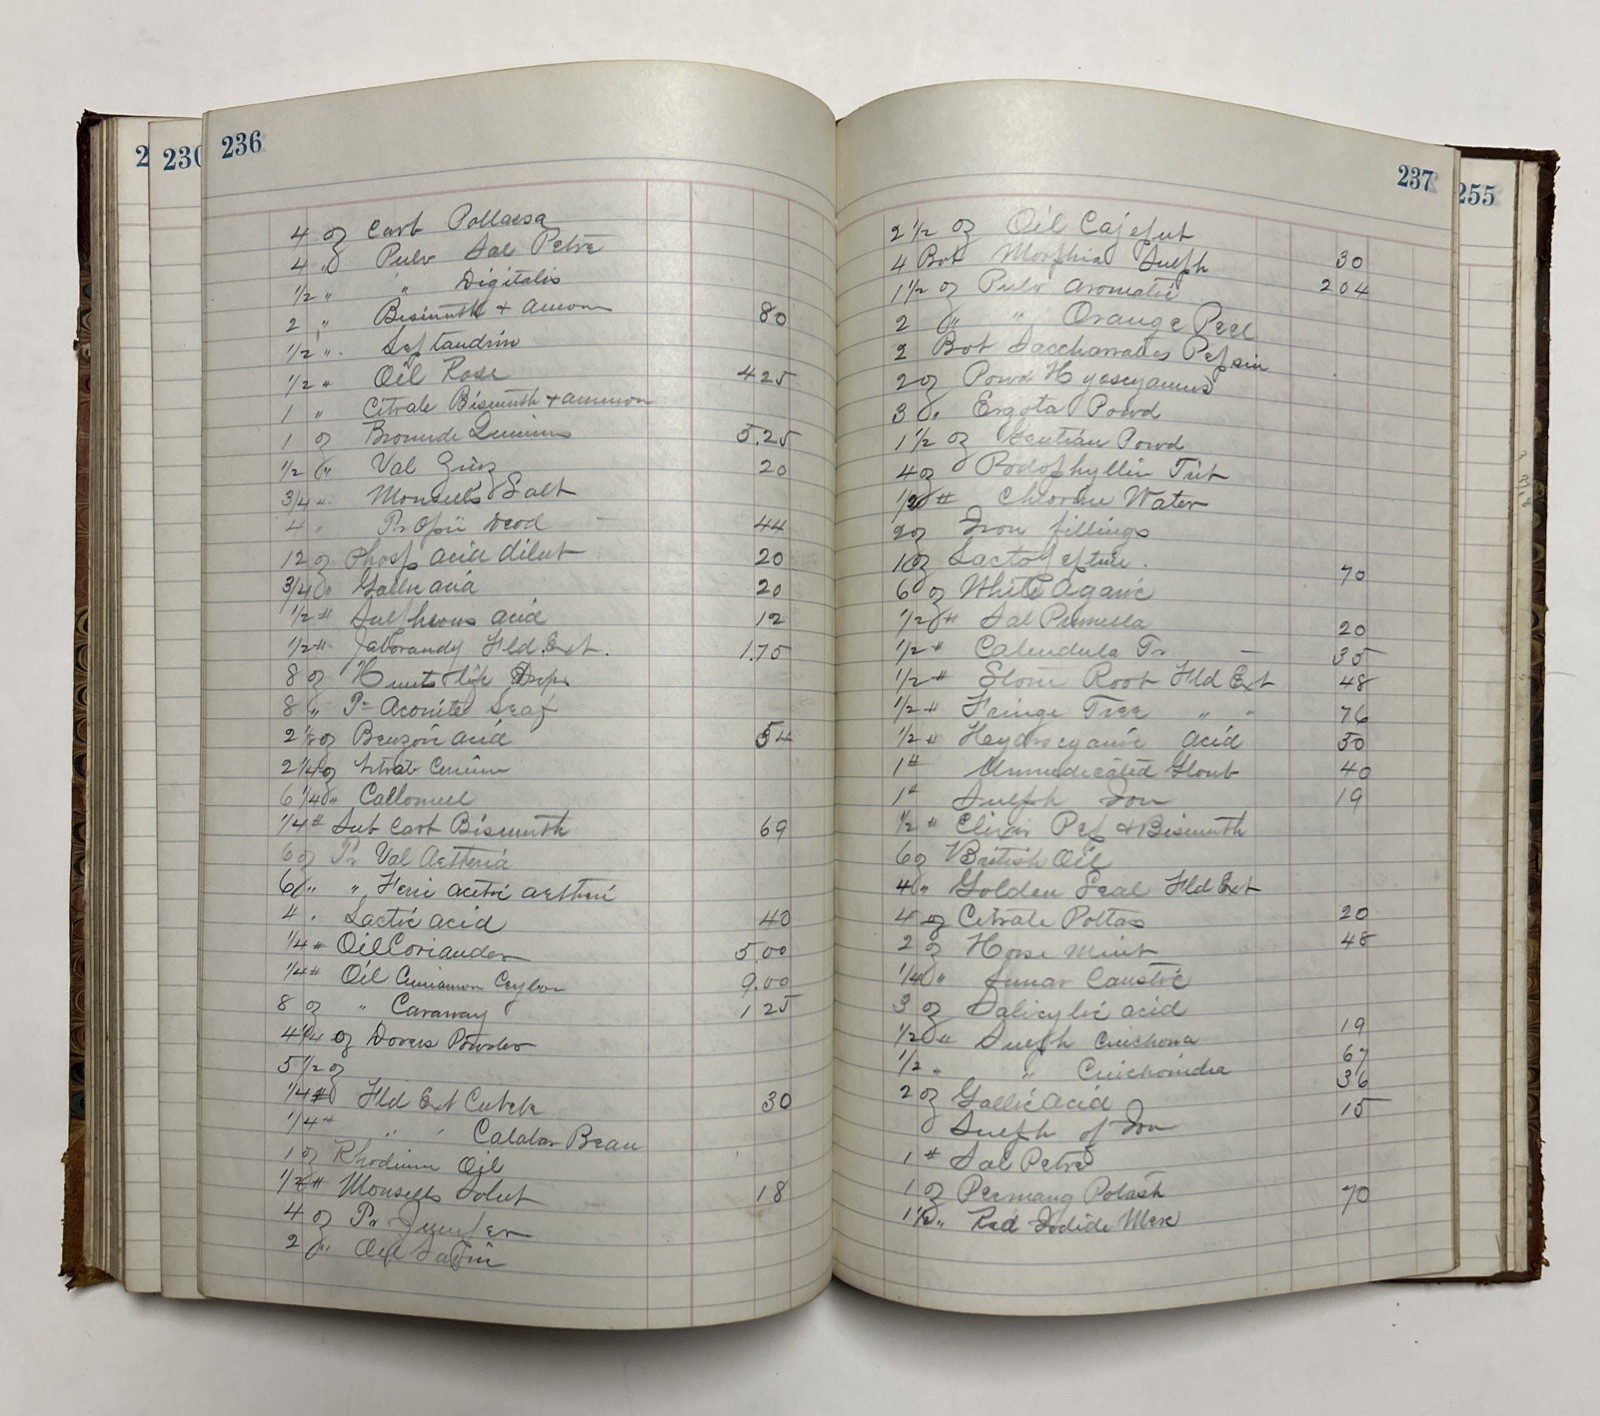 2
230
236
4 oz Carb Pottassa
4 " Pulv Sal Petre
1/2 " " Digitalis
2 " Bismuth & Amon 80
1/2 " Leptandrin
1/2 " Oil Rose 425
1 " Citrate Bismuth & ammon
1 oz Bromide 5.25
1/2 " Val Zinz 20
3/4 " Monsells Salt
4 " Tr Opii Deod 44
12 oz Phosp acid dilut 20
3/4 " Gallic acid 20
1/2 # Sulpherous acid 12
1/2 # Jaborandy Fld. Ext. 1.75
8 oz Hunts life Drops
8 " Tr Aconite Leaf
2 1/8 oz Benzoic acid 54
2 1/4 oz Cerium
6 1/4 " Callomel
1/4 # Sub Carb Bismuth 69
6 oz Tr Val Aetheria
6 " " Ferri acetic aetheri
4 . Lactic acid 40
1/4 # Oil Coriander 5.00
1/4 # Oil Cinnamon Ceylon 9.00
8 oz " Caraway 125
4 1/4 oz Dovers Powder
5 1/2 oz
1/4 # Fld Ext Cubeb 30
1/4 # " " Calabar Bean
1 oz Rhodium Oil
1/2 # Monsells Solut 18
4 oz Tr
2 " Oil
237
255
2 1/2 oz Oil Cajeput
4 Bot Morphia Sulph 30
1 1/2 oz Pulv Aromatic 204
2 " " Orange Peel
2 Bot Saccharrates Pepsin
2 oz Powd Hyoscyamus
3 " Ergota Powd
1 1/2 oz Gentian Powd
4 oz Podophyllin Trit
1/2 # Chlorine Water
2 oz Iron fillings
1 oz Lactopeptine . 70
6 oz White Agaric
1/2 # Sal Prunella 20
1/2 # Calendula Tr. — 35
1/2 # Stone Root Fld Ext 48
1/2 # Fringe Tree " " 76
1/2 # Heydrocyanic Acid 50
1 # Unmedicated Glob 40
1 # Sulph Iron 19
1/2 # Elixir Pep & Bismuth
6 oz British Oil
4 " Golden Seal Fld Ext
4 oz Citrate Pottas 20
2 oz Horse mint 48
1/4 " Lunar Caustic
3 oz Salicylic acid
1/2 " Sulph Cinchona 19
1/2 " " Cinchonidia 67
2 oz Gallic Acid 36
Sulph of Iron 15
1 # Sal Petre
1 oz Permang Potash 70
1 1/2 " Red Iodide Merc